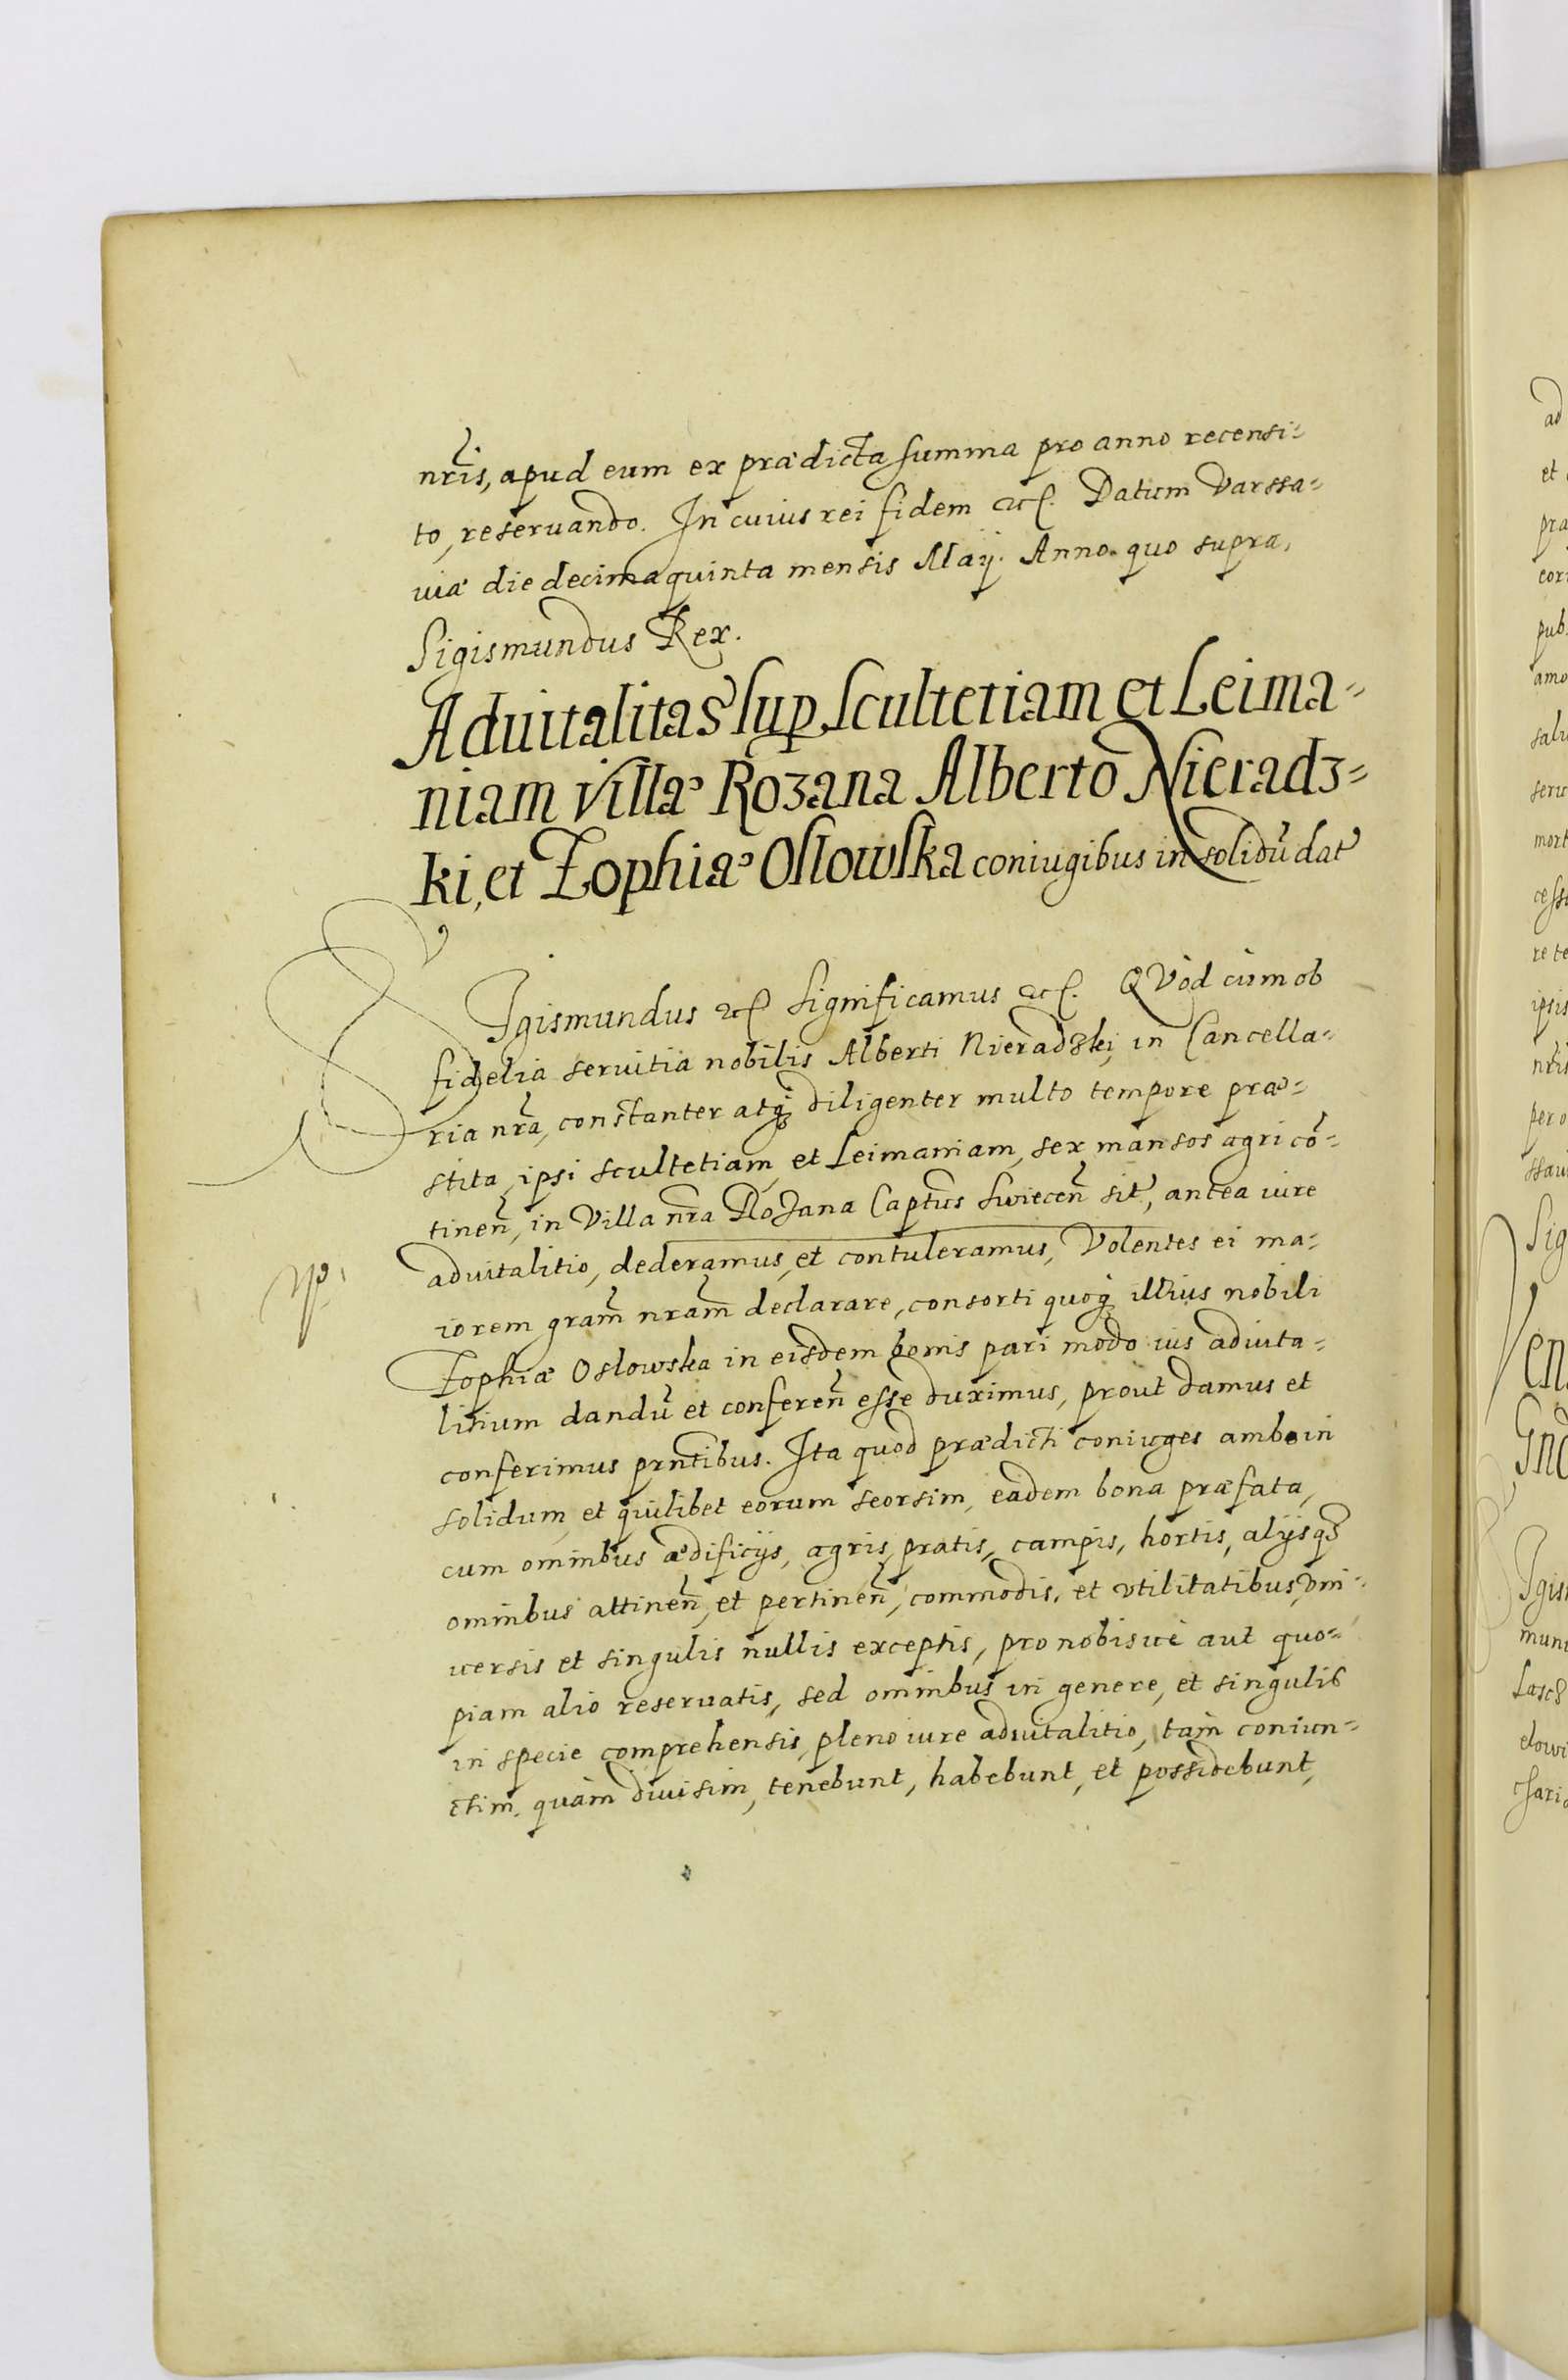 nr̃is, apud eum ex prædicta summa pro anno recensi=
to, reseruando. In cuius rei fidem etc. Datum Varssa=
uiæ die decima quinta mensis Maij. Anno quo supra,
Sigismundus Rex.
Aduitalitas sup scultetiam et Leima=
niam villæ Rozana Alberto Nieradz=
ki, et Zophiæ Oslowska coniugibus in solidũ dat
SIgismundus etc Significamus etc. QVòd cùm ob
fidelia seruitia nobilis Alberti Nieradzki, in Cancella=
ria nr̃a, constanter atq; diligenter multo tempore præ=
stita, ipsi scultetiam, et Leimaniam, sex mansos agri cõ=
tineñ, in Villa nr̃a Rozana Captus Swieceñ sit, antea iure
aduitalitio, dederamus, et contuleramus, Volentes ei ma=
iorem gram̃ nram̃ declarare, consorti quoq; illius nobili
Zophiæ Oslowska in eisdem bonis pari modo ius aduita=
litium dandũ et confereñ esse duximus, prout damus et
conferimus prntibus. Ita quod prædicti coniuges ambo in
solidum, et quilibet eorum seorsim, eadem bona præfata,
cum omnibus ædificijs, agris, pratis, campis, hortis, alijsq;
omnibus attineñ, et pertineñ, commodis, et vtilitatibus, vni=
uersis et singulis nullis exceptis, pro nobis uè aut quo=
piam alio reseruatis, sed omnibus in genere, et singulis
in specie comprehensis, pleno iure aduitalitio, tam coniun=
ctim, quàm diuisim, tenebunt, habebunt, et possidebunt,
ad
et
pra
pub.
amo
mort
re te
ipsis
nr̃is
per o
Sig
Ven
Igis